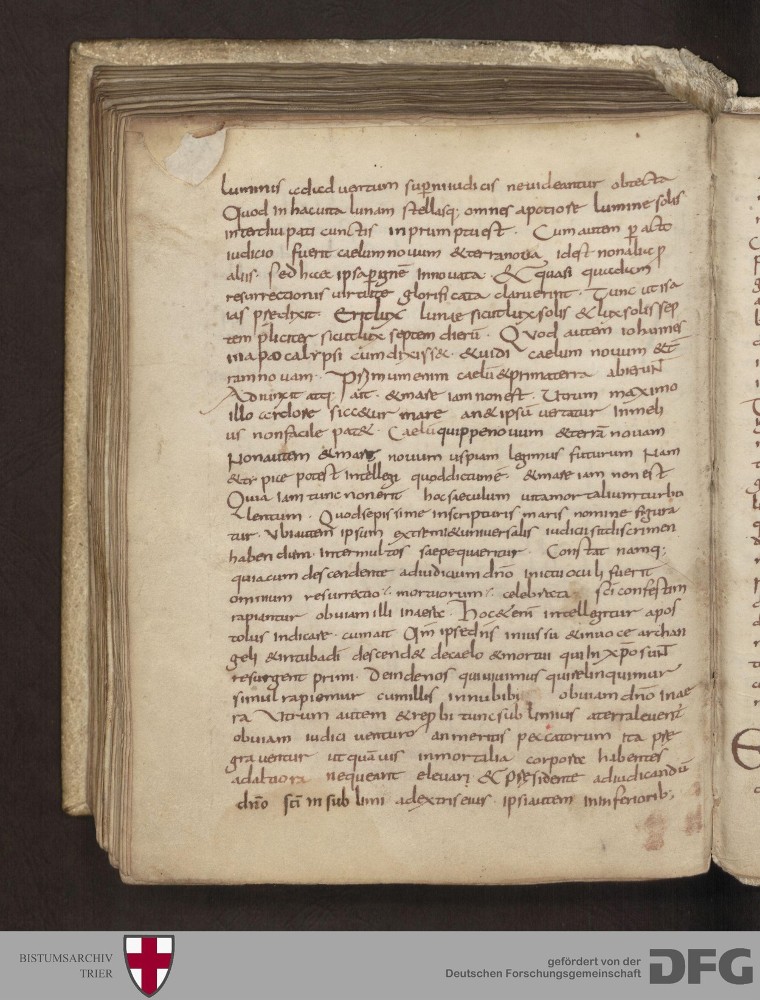 luminis ad aduentum supni iudicis ne uideantur obtecta
Quod in hac uita lunam stellasq; omnes apotiore lumine solis
interdiu pati cunctis inpromptu est. Cum autem pacto
iudicio fuerit caelum nouum & terra noua idest non aliae p
aliis. sed haec ipsa p ignē innouata. & quasi quaedam
resurrectionis uirtute glorificata claruerint. Tunc ut isa
ias praedixit. Erit lux lunae sicut lux solis & lux solis sep
tem pliciter sicut lux septem dierū. Quod autem iohannis
in apocalypsi cum dixiss&. & uidi caelum nouum & t
ram nouam. Primum enim caelū & prima terra abierunt
Adiunxit atq; ait. & mare iam non est. Utrum maximo
illo ardore sicc&ur mare an & ipsū uertatur in meli
us non facile pat&. Caelū quippe nouum & terrā nouam
Non autem & mare nouum uspiam legimus futurum Nam
& tropice potest intellegi quod dictum ē. & mare iam non est
Quia iam tunc non erit hoc saeculum uita mortalium turbu
lentum. Quod sepissime in scripturis maris nomine figura
tur. Ubi autem ipsum extremi & uniuersalis iudicii sit discrimen
habendum. inter multos saepe quaeritur. Constat namq;
quia cum descendente ad iudicium dn̄o in ictu oculi fuerit
omnium resurrectio mortuorum celebrata sc̄i confestim
rapiantur obuiam illi in aera. Hoc & enī intellegitur apos
tolus indicare. cum ait Qm̄ ipse dn̄s in iussu & in uoce archan
geli & in tuba dī descend& de caelo & mortui qui in xp̄o sunt
resurgent primi. Deinde nos qui uiuimus qui relinquimur
simul rapiemur cum illis in nubibus obuiam dn̄o in ae
ra Utrum autem & reprobi tunc sublimius a terra leuent
obuiam iudici uenturo an meritis peccatorum ita prae
grauentur ut quāuis inmortalia corpora habentes
ad altiora nequeant eleuari & praesidente ad iudicandū
dn̄o sc̄i in sublimi ad extris eius. ipsi autem in inferiorib;
BISTUMSARCHIV
TRIER
gefördert von der
Deutschen Forschungsgemeinschaft
DFG